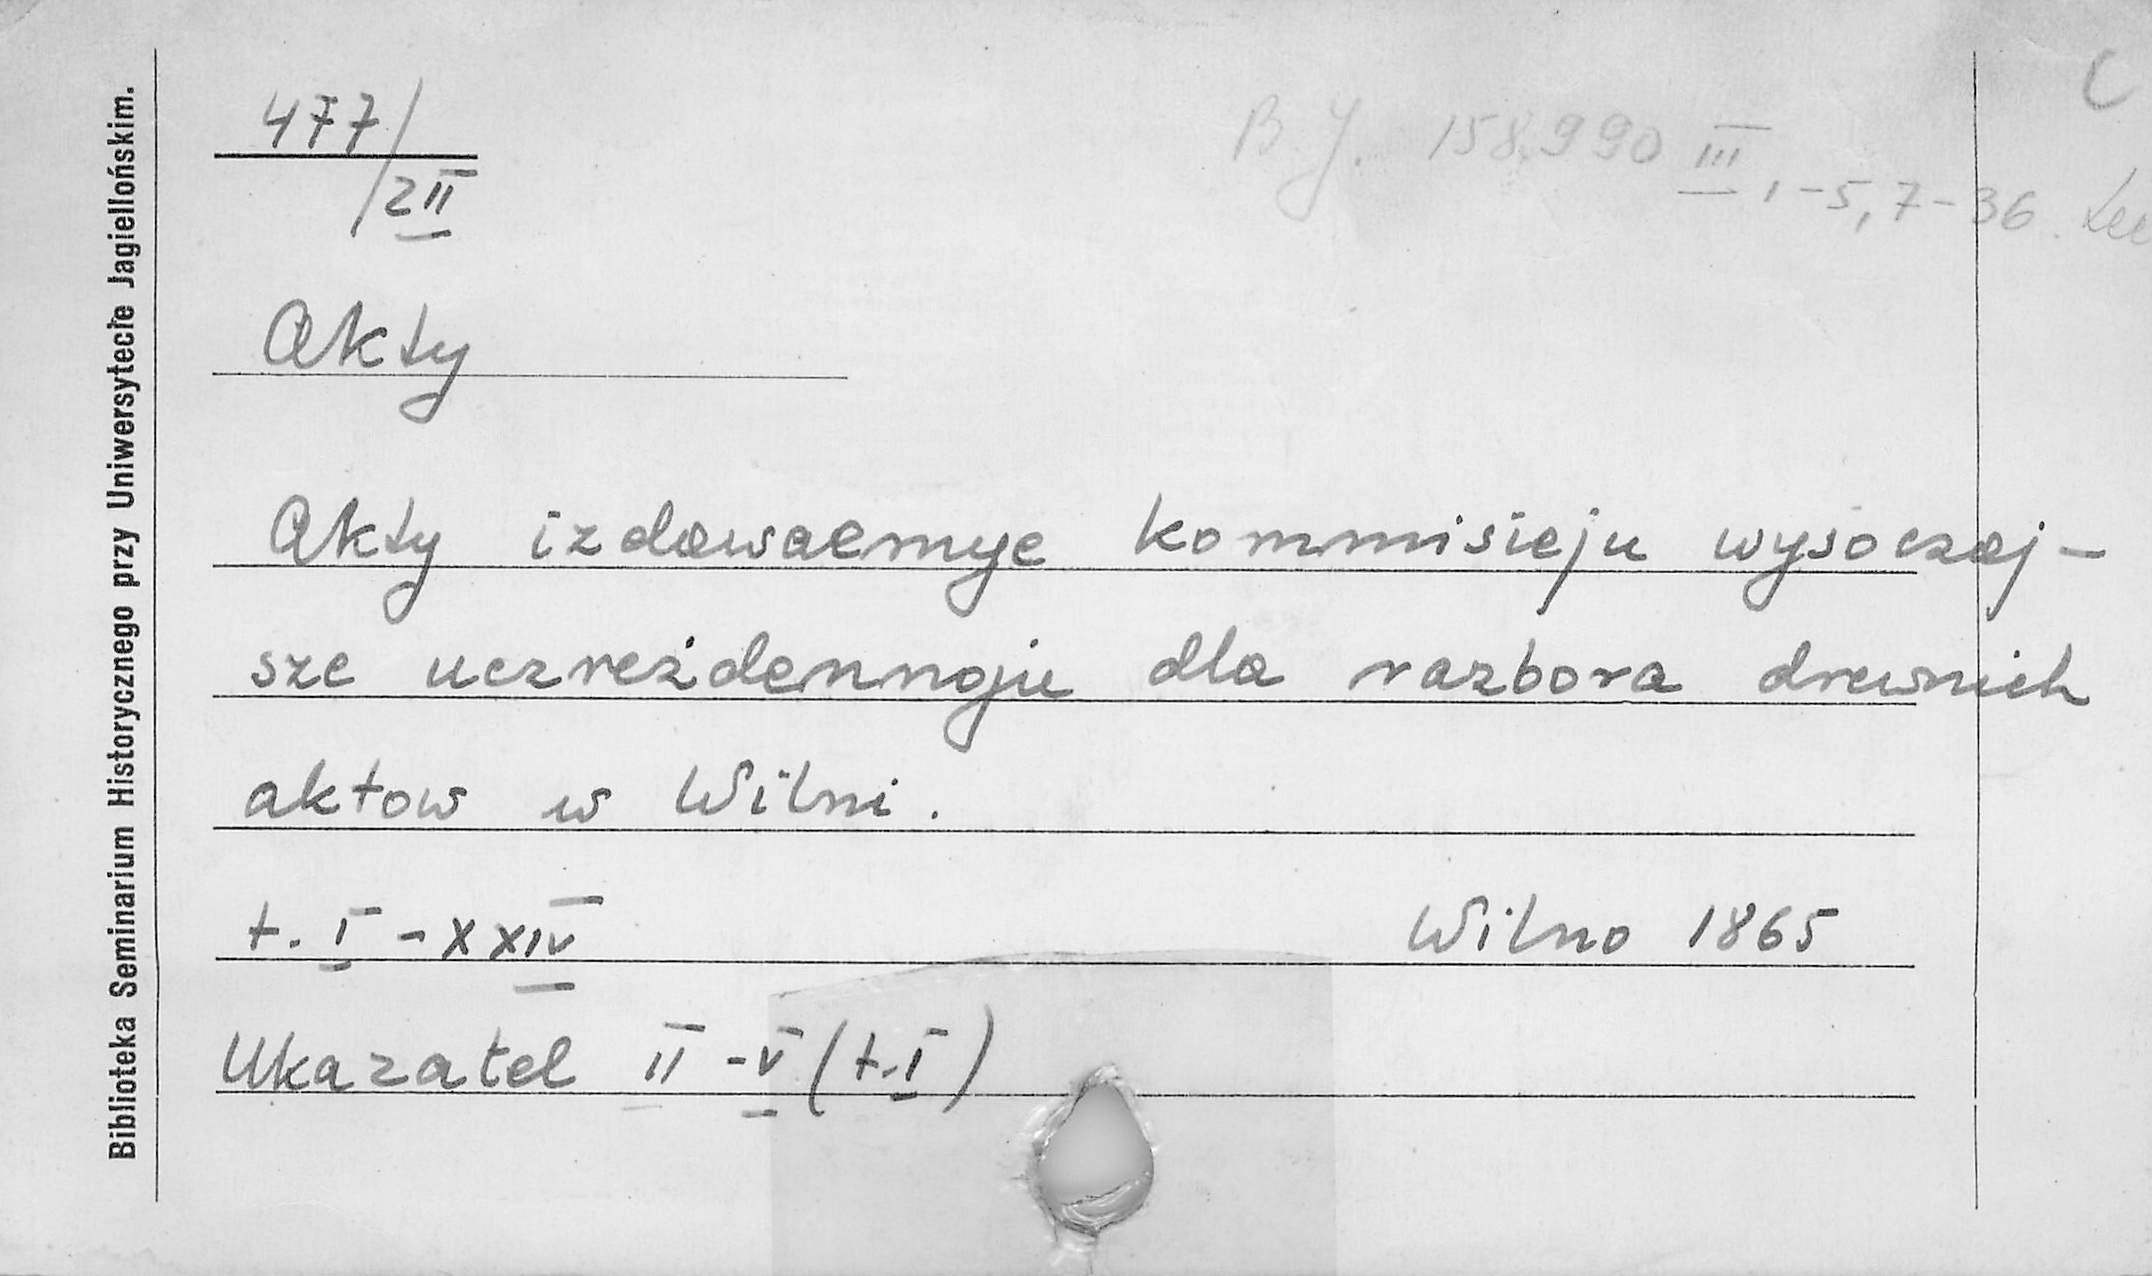 Biblioteka Seminarium Historycznego przy Uniwersytecie Jagiellońskim.
C
477/2II
B. J. 158990 III, 1-5, 7-36.
Akty
Akty izdawaemye kommisieju wysoczaj-
sze uczreżdennoju dla razbora drewnich
aktow w Wilni.
t. I - XXIV Wilno 1865
Ukazatel II - V (t. I)